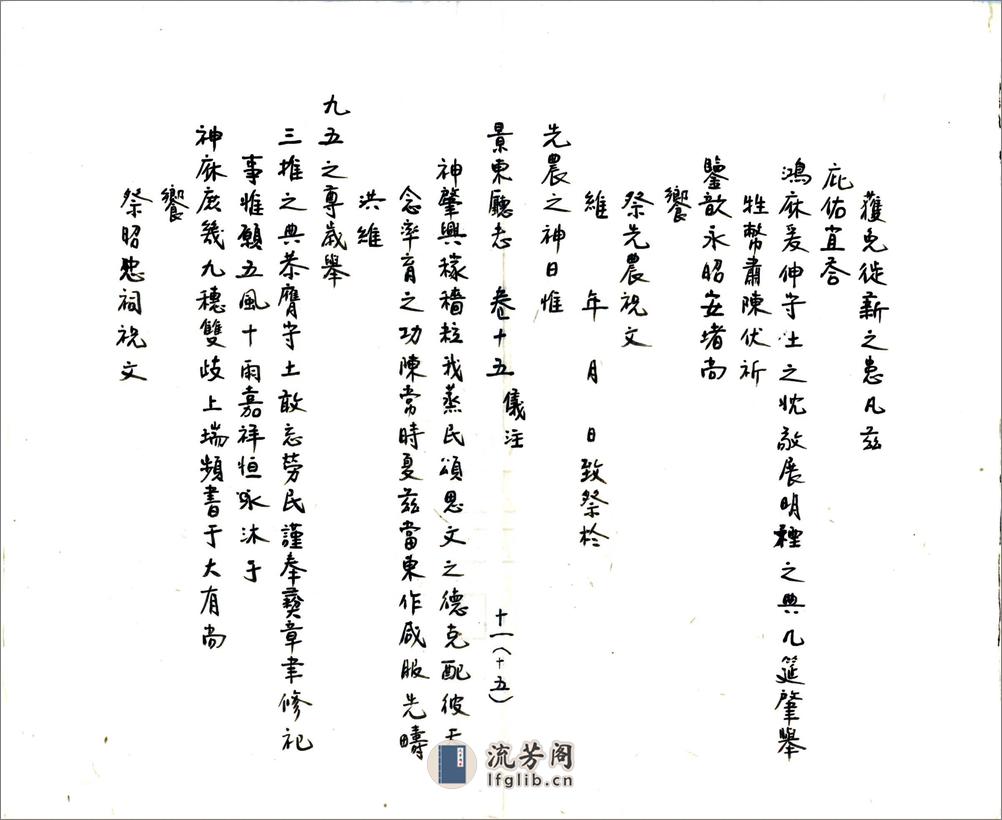 獲免徙薪之患凡茲
庇佑宜荅
鴻庥爰伸守土之忱敬展明禋之典几筵肇舉
牲幣肅陳伏祈
鑒歆永昭安堵尚
饗
祭先農祝文
維 年 月 日致祭於
先農之神曰惟
景東廳志 卷十五 儀注 十一(十五)
神肇興稼穡粒我蒸民頌思文之德克配彼天
念率育之功陳常時夏茲當東作咸服先疇
洪維
九五之尊歲舉
三推之典恭膺守土敢忘勞民謹奉彝章聿修祀
事惟願五風十雨嘉祥恒咏沐于
神庥庶幾九穗雙歧上瑞頻書于大有尚
饗
祭昭忠祠祝文
流芳阁
lfglib.cn